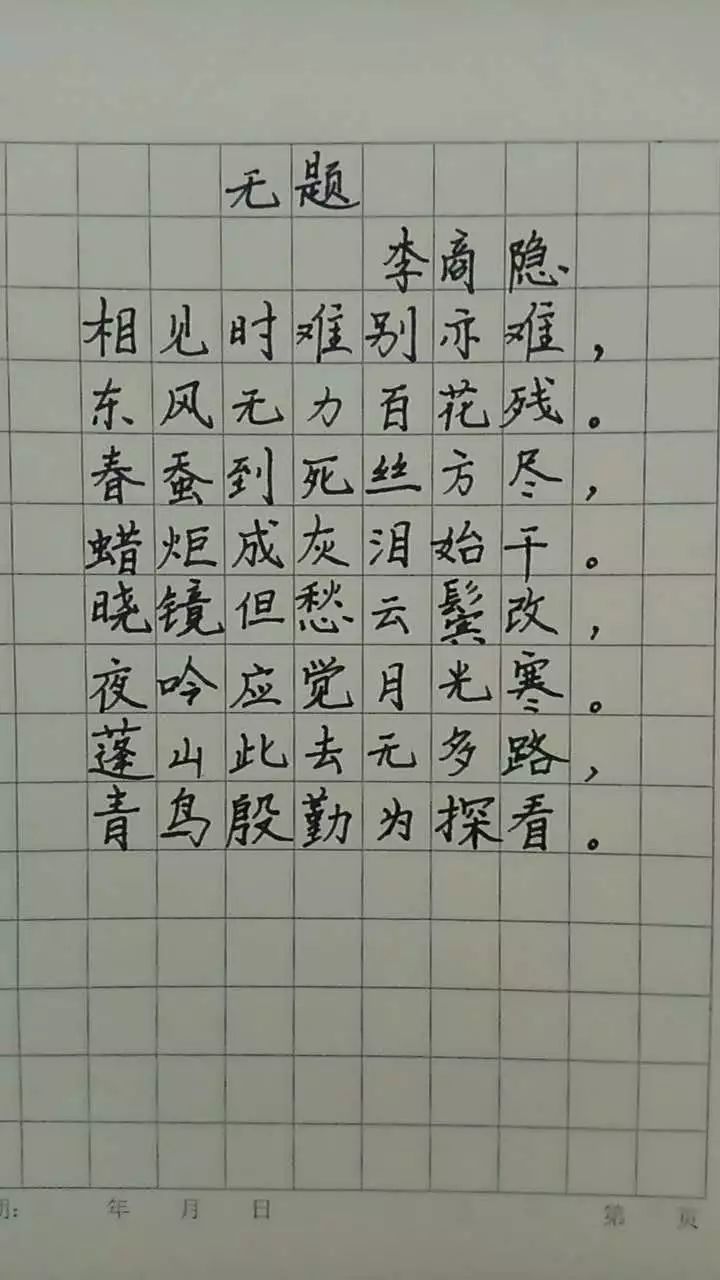 无题
李商隐
相见时难别亦难，
东风无力百花残。
春蚕到死丝方尽，
蜡炬成灰泪始干。
晓镜但愁云鬓改，
夜吟应觉月光寒。
蓬山此去无多路，
青鸟殷勤为探看。
期： 年 月 日 第 页